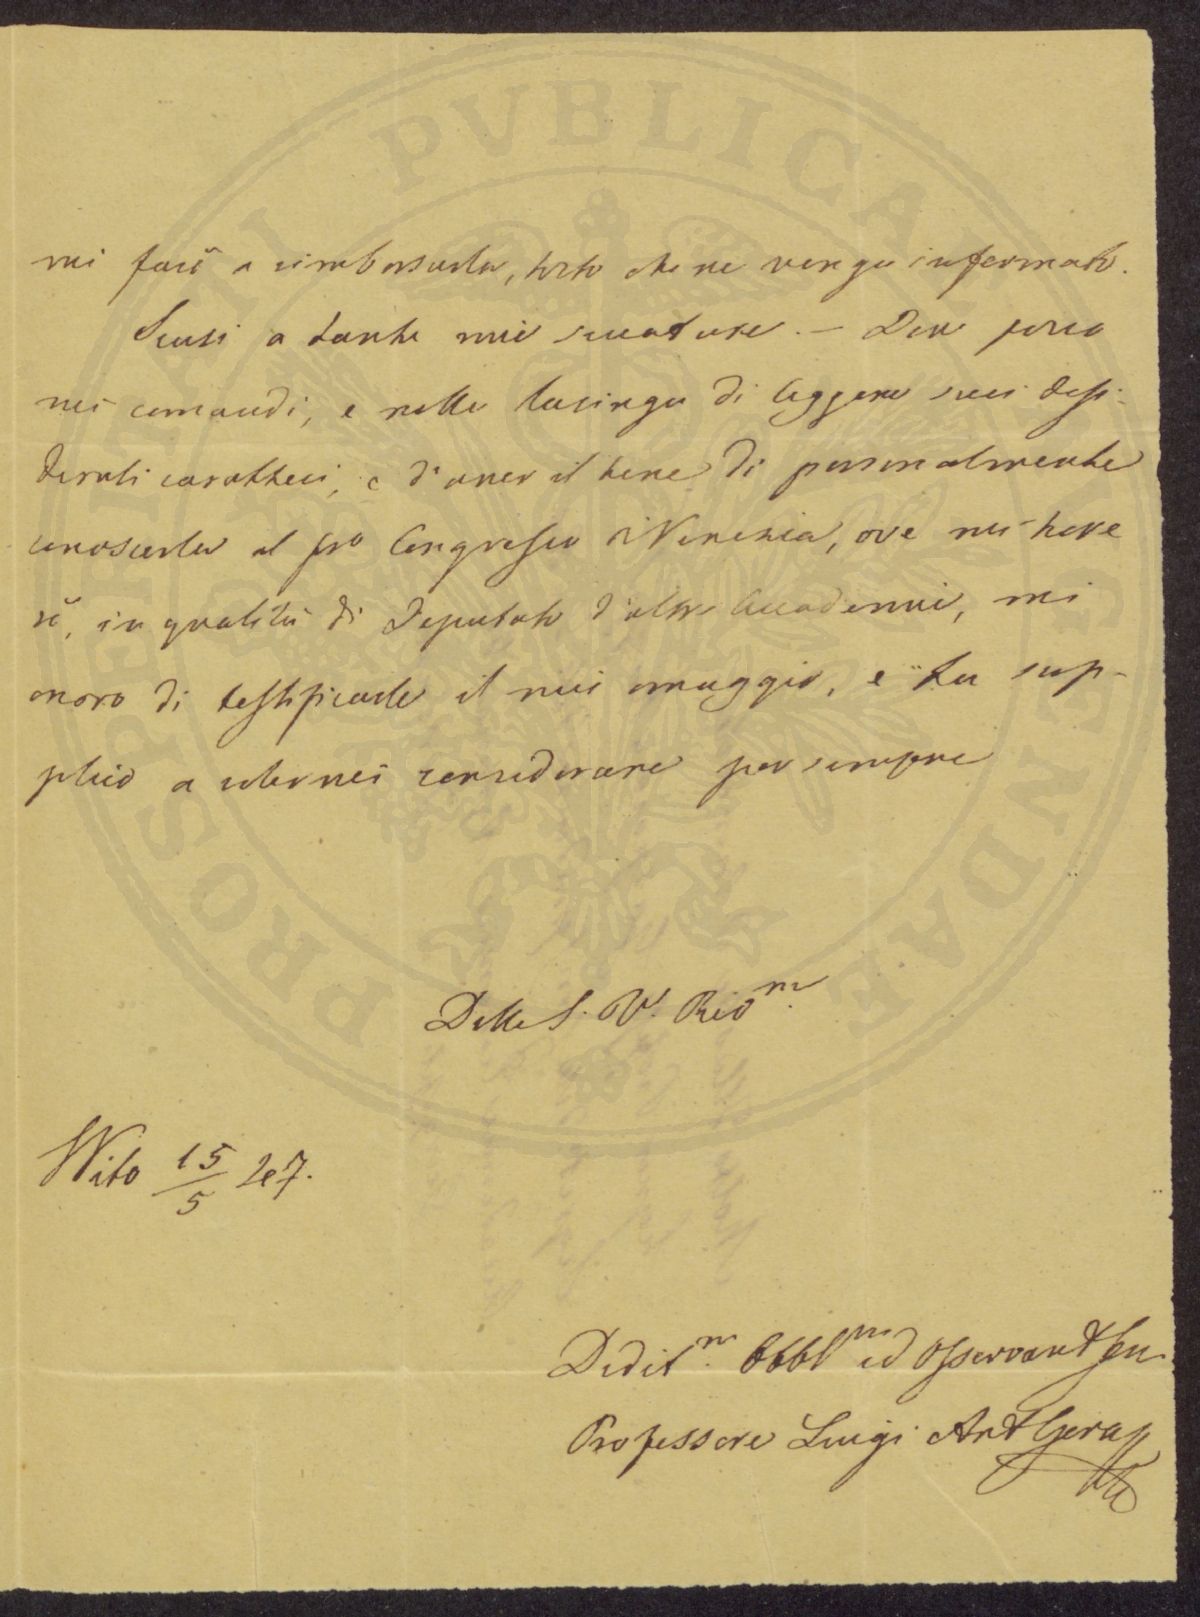 mi farò a rimborsarla, tosto che ne venga informato.
Scusi a tante mie seccature. — Don poscia
miei comandi, e nella lusinga di leggere suoi desi-
derati caratteri, e d'aver il bene di personalmente
conoscerla al pro Congresso i Venezia, ove mi trove
rò, in qualità di Deputato d'altre Accademie, mi
onoro di testificarle il mio omaggio, e La sup-
plico a volermi considerare per sempre
Della S. V. Rivm.
Nito 15/5 847.
Dedit.m Obblm ed Osservant Ser.
Professore Luigi Ant
PROSPERITATI PVBLICAE AVGENDAE